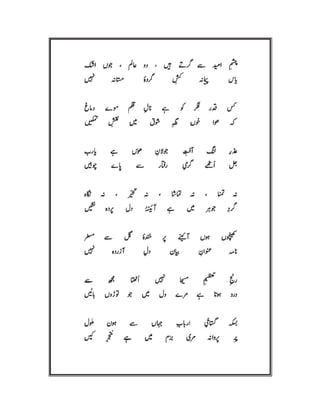 چشم امید سے گرتے ہیں ، دو عالم ، جوں اشک
یاس پیمانہ کش گریۂ مستانہ نہیں
کس قدر فکر کو ہے نال قلم موے دماغ
کہ ہوا خون نگہ شوق میں نقش تمکیں
عذر لنگ آفت جولان ہوس ہے یارب
جل اٹھے گرمی رفتار سے پاے چوبیں
نہ تمنا ، نہ تماشا ، نہ تحیر ، نہ نگاہ
گرد جوہر میں ہے آئینۂ دل پردہ نشیں
کھینچوں ہوں آئینے پر خندۂ گل سے مسطر
نامہ عنوان بیان دل آزردہ نہیں
رنج تعظیم مسیحا نہیں اٹھتا مجھ سے
درد ہوتا ہے مرے دل میں جو توڑوں بالیں
بسکہ گستاخی ارباب جہاں سے ہوں ملول
پر پروانہ مری بزم میں ہے خنجر کیں